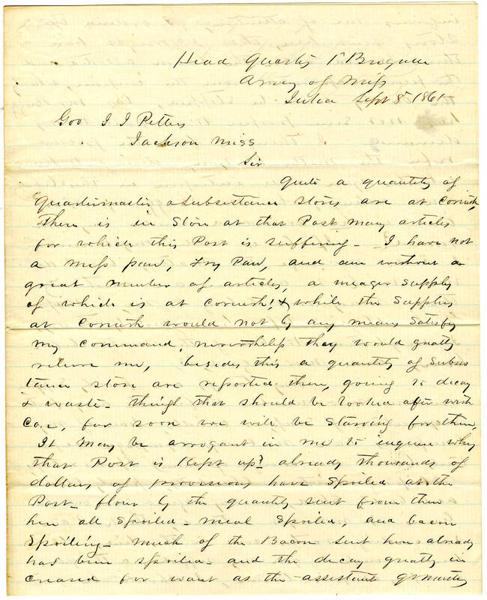 Head Quarters 1st Brigade
Army of Miss
Iuka Sept 8 1861
Gov J J Pettus
Jackson Miss
Sir
Quite a quantity of
Quartermaster & Subsistance stores are at Corinth,
There is in Store at that Post many articles
for which this Post is suffering - I have not
a mess pan, Fry Pan, and am without a
great number of articles, a meager supply
of which is at Corinth! & while the Supplies
at Corinth would not by any means Satisfy
my Command, nevertheless they would greatly
relieve me, besides this a quantity of Subsis
tance store are reported there, going to decay
& waste - things that should be looked after with
Care, for soon we will be starving for them,
It may be arrogant in me to enquire why
that Post is Kept up? already thousands of
dollars of provisions have Spoiled at the
Post - flour by the quantity sent from there
here all Spoiled - meal Spoiled, and bacon
Spoiling - Much of the Bacon sent here already
had been spoiled - and the decay greatly in
creased for want as the assistant